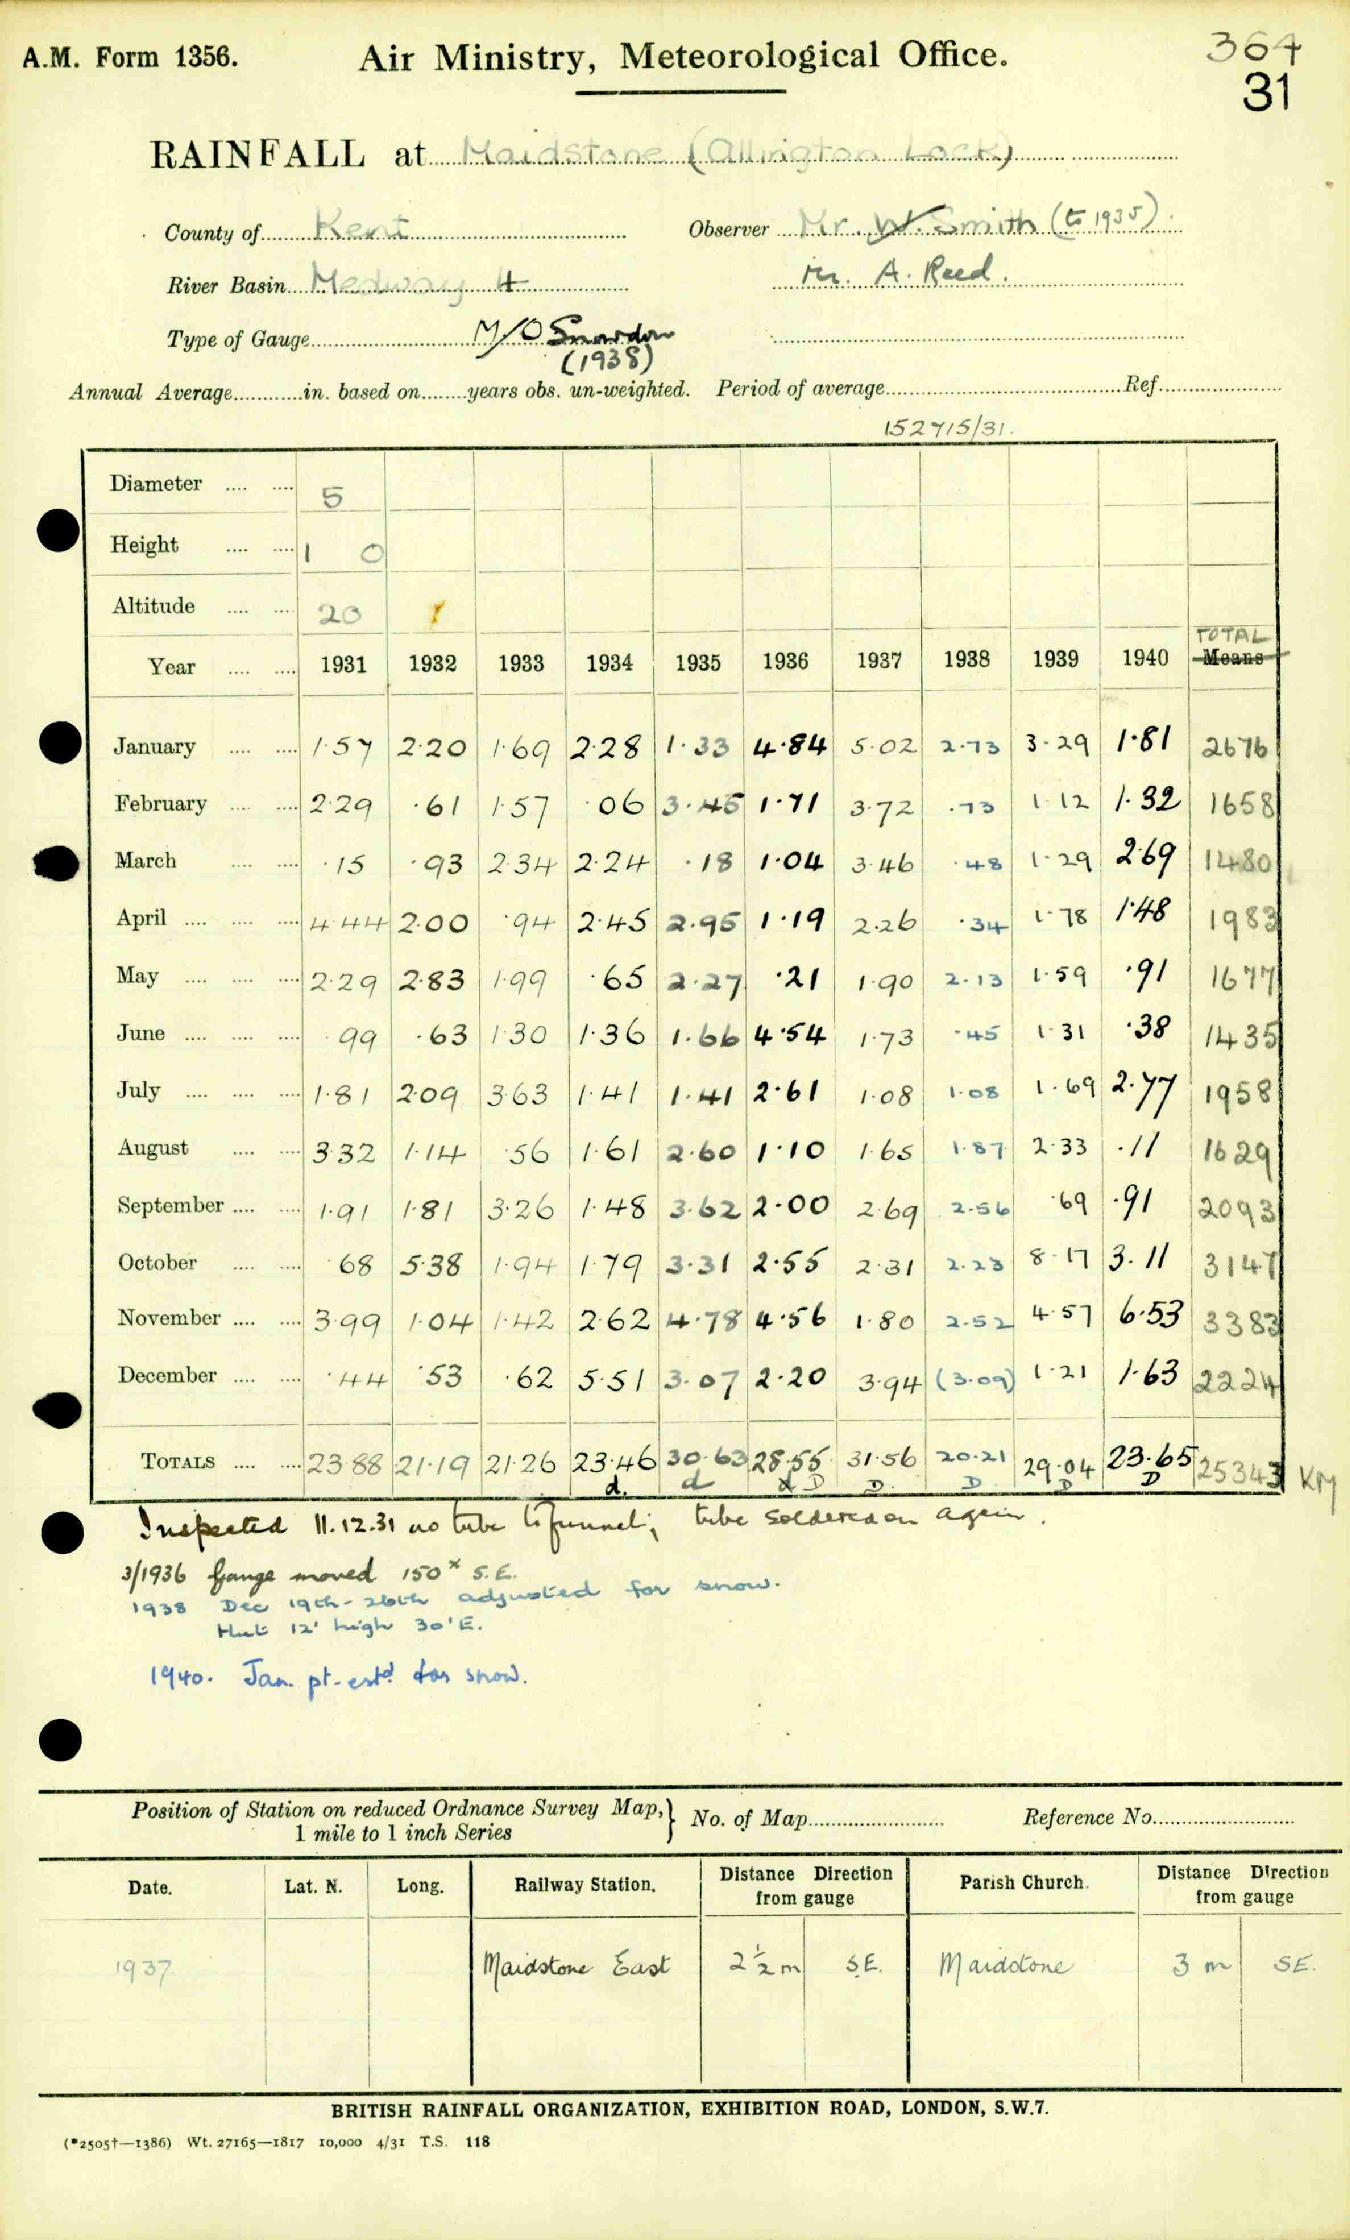 A.M. Form 1356. Air Ministry, Meteorological Office. 364
31
RAINFALL at Maidstone (Allington Lock)
County of Kent Observer Mr. W. Smith (to 1935).
River Basin Medway 4 Mr. A. Reed.
Type of Gauge M/O Snowdon
(1938)
Annual Average in. based on years obs. un-weighted. Period of average Ref.
152715/31.
Diameter 5
Height 1 0
Altitude 20
TOTAL
Year 1931 1932 1933 1934 1935 1936 1937 1938 1939 1940 Means
January 1.57 2.20 1.69 2.28 1.33 4.84 5.02 2.73 3.29 1.81 2676
February 2.29 .61 1.57 .06 3.45 1.71 3.72 .73 1.12 1.32 1658
March .15 .93 2.34 2.24 .18 1.04 3.46 .48 1.29 2.69 1480
April 4.44 2.00 .94 2.45 2.95 1.19 2.26 .34 1.78 1.48 1983
May 2.29 2.83 1.99 .65 2.27 .21 1.90 2.13 1.59 .91 1677
June .99 .63 1.30 1.36 1.66 4.54 1.73 .45 1.31 .38 1435
July 1.81 2.09 3.63 1.41 1.41 2.61 1.08 1.08 1.69 2.77 1958
August 3.32 1.14 .56 1.61 2.60 1.10 1.65 1.87 2.33 .11 1629
September 1.91 1.81 3.26 1.48 3.62 2.00 2.69 2.56 .69 .91 2093
October .68 5.38 1.94 1.79 3.31 2.55 2.31 2.23 8.17 3.11 3147
November 3.99 1.04 1.42 2.62 4.78 4.56 1.80 2.52 4.57 6.53 3383
December .44 .53 .62 5.51 3.07 2.20 3.94 (3.09) 1.21 1.63 2224
TOTALS 23.88 21.19 21.26 23.46 30.63 28.55 31.56 20.21 29.04 23.65 25343 KM
d. d d D D D D D
Inspected 11.12.31 no tube to funnel; tube soldered on again.
3/1936 Gauge moved 150x S.E.
1938 Dec 19th-26th adjusted for snow.
Hut 12' high 30' E.
1940. Jan. pt. estd for snow.
Position of Station on reduced Ordnance Survey Map,} No. of Map Reference No.
1 mile to 1 inch Series
Date. Lat. N. Long. Railway Station. Distance Direction from gauge Parish Church. Distance Direction from gauge
1937 Maidstone East 2½ m SE. Maidstone 3 m SE.
BRITISH RAINFALL ORGANIZATION, EXHIBITION ROAD, LONDON, S.W.7.
(*2505†—1386) Wt. 27165—1817 10,000 4/31 T.S. 118